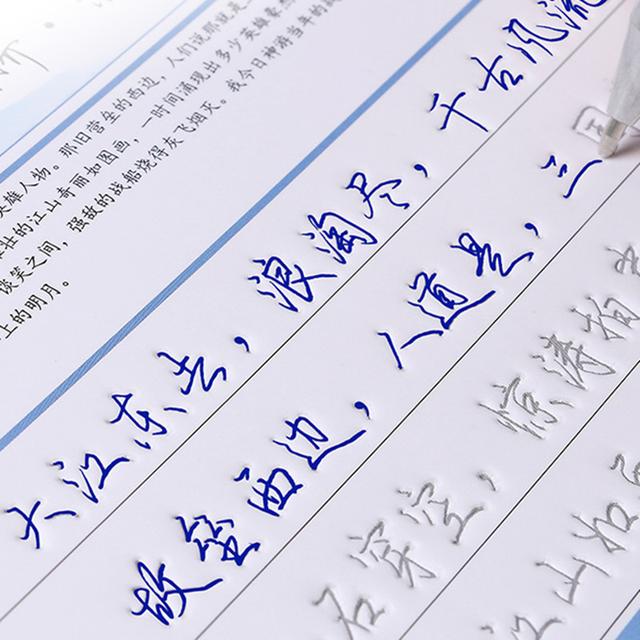 英雄人物。那旧营垒的西边，人们说那就是
壮的江山奇丽如图画，一时间涌现出多少英雄豪杰
谈笑之间，强敌的战船烧得灰飞烟灭。我今日神游当年的战
上的明月。
大江东去，浪淘尽，千古风流
故垒西边，人道是，三
石穿空，惊涛拍
江山如